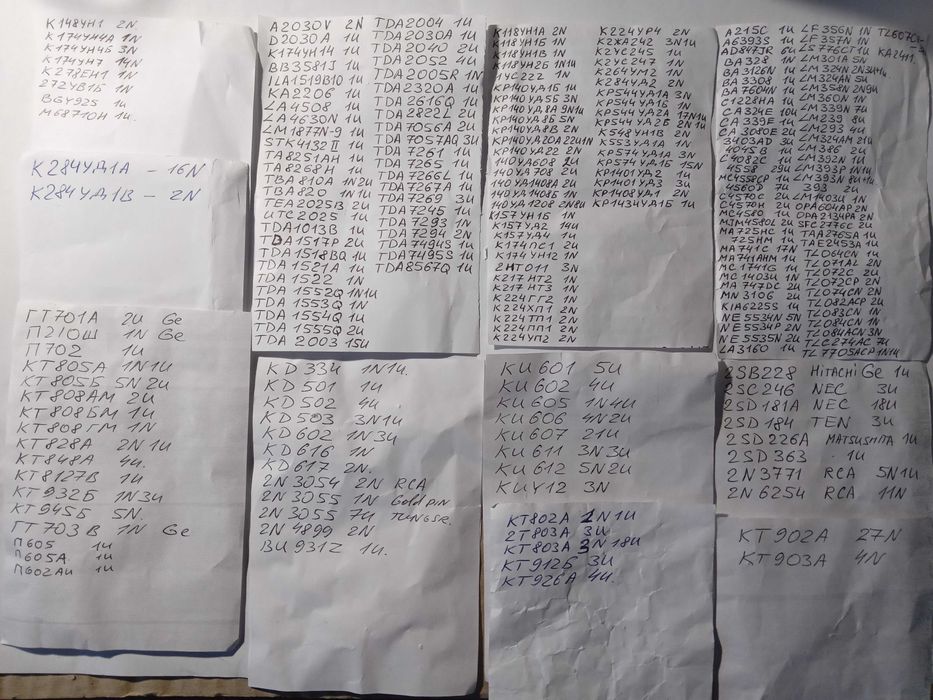 К148УН1 2N
К174УН4А 1N
К174УН4Б 3N
К174УН7 14N
К278ЕН1 1N
272УВ1Б 1N
BGY925 1U
M68710H 1U.
К284УД1А - 16N
К284УД1В - 2N
ГТ701А 2U Ge
П210Ш 1N Ge
П702 1U
КТ805А 1N1U
КТ805Б 5N2U
КТ808АМ 2U
КТ808БМ 1U
КТ808ГМ 1N
КТ828А 2N1U
КТ848А 4U.
КТ8127В 1U
КТ932Б 1N3U
КТ945Б 5N.
ГТ703В 1N Ge
П605 1U
П605А 1U
П602АИ 1U
A2030V 2N
D2030A 1U
К174УН14 1U
BB3581J 1U
LA1519B10 1U
KA2206 1U
LA4508 1U
LA4630N 1U
LM1877N-9 1U
STK4132II 1U
TA8251AH 1U
TA8268H 1U
TBA810A 1N2U
TBA820 1N1U
TEA2025B 2U
UTC2025 1U
TDA1013B 1U
TDA1517P 2U
TDA1518BQ 1U
TDA1521A 1U
TDA1522 1N
TDA1552Q 1N1U
TDA1553Q 1N
TDA1554Q 1U
TDA1555Q 2U
TDA2003 15U
TDA2004 1U
TDA2030A 1U
TDA2040 2U
TDA2052 4U
TDA2005R 1N
TDA2320A 1U
TDA2616Q 1U
TDA2822L 2U
TDA7056A 2U
TDA7057AQ 3U
TDA7261 1U
TDA7265 1U
TDA7266L 1U
TDA7267A 1U
TDA7269 3U
TDA7245 1U
TDA7293 1N
TDA7294 2N
TDA7494S 1U
TDA7495S 1U
TDA8567Q 1U
KD334 1N1U.
KD501 1U
KD502 4U
KD503 3N1U
KD602 1N3U
KD616 1N
KD617 2N.
2N3054 2N RCA
2N3055 1N Gold pin
2N3055 7U TUNGSR.
2N4899 2N
BU931Z 1U.
К118УН1А 2N
К118УН1Б 1N
К118УН1В 1N
К118УН2Б 1N1U
1УС222 1N
КР140УД1Б 1U
КР140УД5Б 3N
КР140УД8А 9N1U
КР140УД8Б 5N
КР140УД8В 2N
КР140УД20А 2U1N
КР140УД2 2N
140УД608 2U
140УД708 2U
140УД1408А 2U
140УД1408Б 1N
140УД1208 2N8U
К157УН1Б 1N
К157УД2 14U
К157УД4 1U
К174ПС1 2U
К174УН12 1N
2НТ011 3N
К217НТ2 1N
К217НТ3 1N
К224ГГ2 1N
К224ХП1 2N
К224ТП1 2N
К224ПП1 2N
К224УП2 2N
К224УР4 2N
К2ЖА242 3N1U
К2УС245 1U
К2УС247 1N
К264УМ2 1N
К284УД2 2N
КР544УД1А 3N
КР544УД1Б 1N
КР544УД2А 17N1U
КР544УД2Б 2N1U
К548УН1В 2N
К553УД1А 1N
КР574УД1А 3N
КР574УД1Б 15N
КР1401УД2 1U
КР1401УД3 3U
КР1408УД1 2N
КР1434УД1Б 1U
KU601 5U
KU602 4U
KU605 1N4U
KU606 4N2U
KU607 21U
KU611 3N3U
KU612 5N2U
KUY12 3N
КТ802А 1N1U
2Т803А 3U
КТ803А 3N18U
КТ912Б 3U
КТ926А 4U.
A215C 1U
A6393S 1U
AD847JR 6U
BA328 1N
BA3126N 1U
BA3308 1U
BA7604N 1U
C1228HA 1U
CA324E 10U
CA339E 1U
CA3080E 2U
3403AD 3U
1045B 1U
C4082C 1U
4558 29U
MC4558CP 1U
4560D 7U
C4570C 2U
C4570H 2U
MC4580 1U
MJM4580L 2U
MA725HC 1U
725HM 1U
MA741C 17N
MA741AHM 1U
MC1741G 1U
MC1403U 1N
MA747DC 2U
MN3106 2U
KIA6225S 1U
NE5534N 5N
NE5534P 2N
NE5535N 2U
LA3160 1U
LF356N 1N
LF357N 1N
LS776CT 1U
LM301A 5N
LM324N 2N34U
LM324AN 5U
LM358N 2N9U
LM360N 1N
LM339N 7U
LM239 8U
LM293 4U
LM324AM 21U
LM386 2U
LM392N 1U
LM393P 1N1U
LM393N 8U
393 2U
LM1403U 1N
OPA604AP 2N
OPA2134PA 2N
SFC2776C 2U
TAA2765A 1U
TAE2453A 1U
TL064CN 1U
TL071AL 2N
TL072C 2U
TL072CP 2N
TL074CN 2N
TL082ACP 2U
TL083CN 1N
TL084CN 1N
TL084ACN 3N
TLC274AC 7U
TL7705ACP 1N1U
KA2411
2SB228 HITACHI Ge 1U
2SC246 NEC 3U
2SD181A NEC 18U
2SD184 TEN 3U
2SD226A MATSUSHITA 1U
2SD363 1U
2N3771 RCA 5N1U
2N6254 RCA 11N
КТ902А 27N
КТ903А 4N